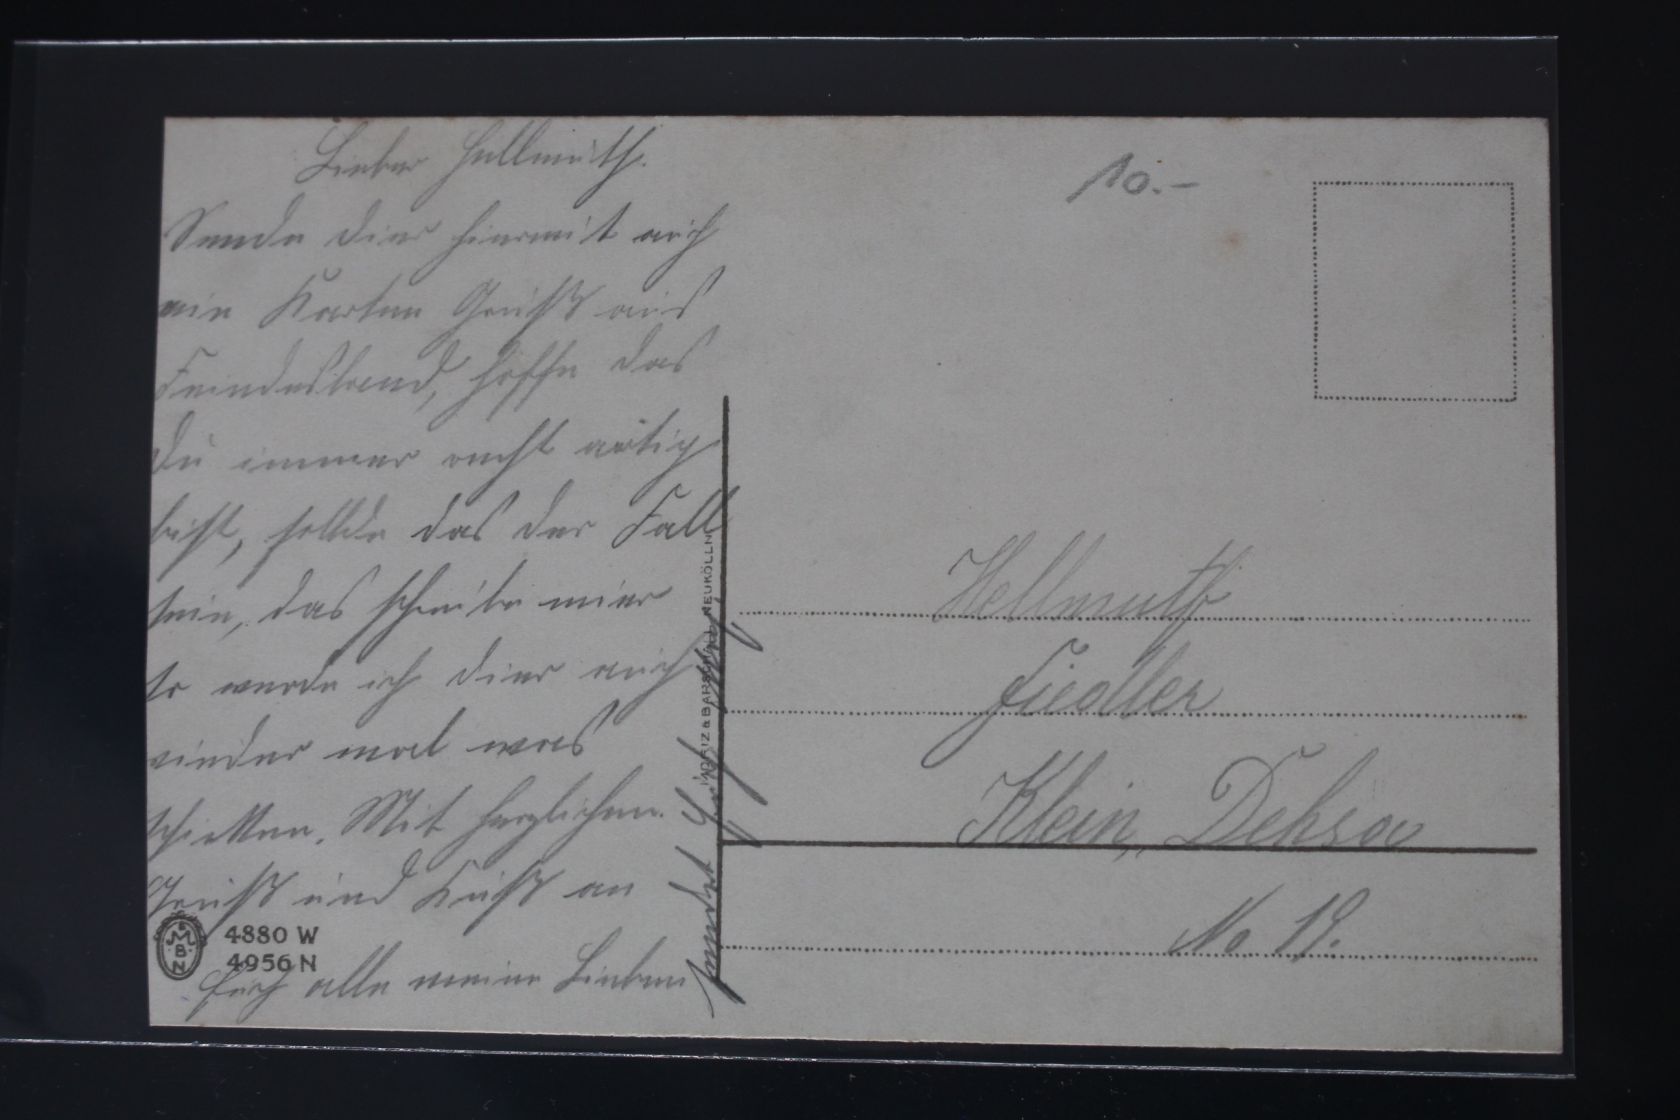 Lieber Hellmuth.
Sende dier hiermit auch
ein Karten Gruß aus
Feindesland, hoffe das
Du immer recht artig
bist, sollde das der Fall
sein, das schreibe mier
so werde ich dier auch
wieder mal was
schicken. Mit herzlichen
Gruß und Kuß an
Euch alle meine Lieben
sendet Euch
10.-
Hellmuth
Fiedler
Klein, Dehsa
No 19.
MORIZ & BARSCHALL NEUKÖLLN
MBN
4880 W
4956 N